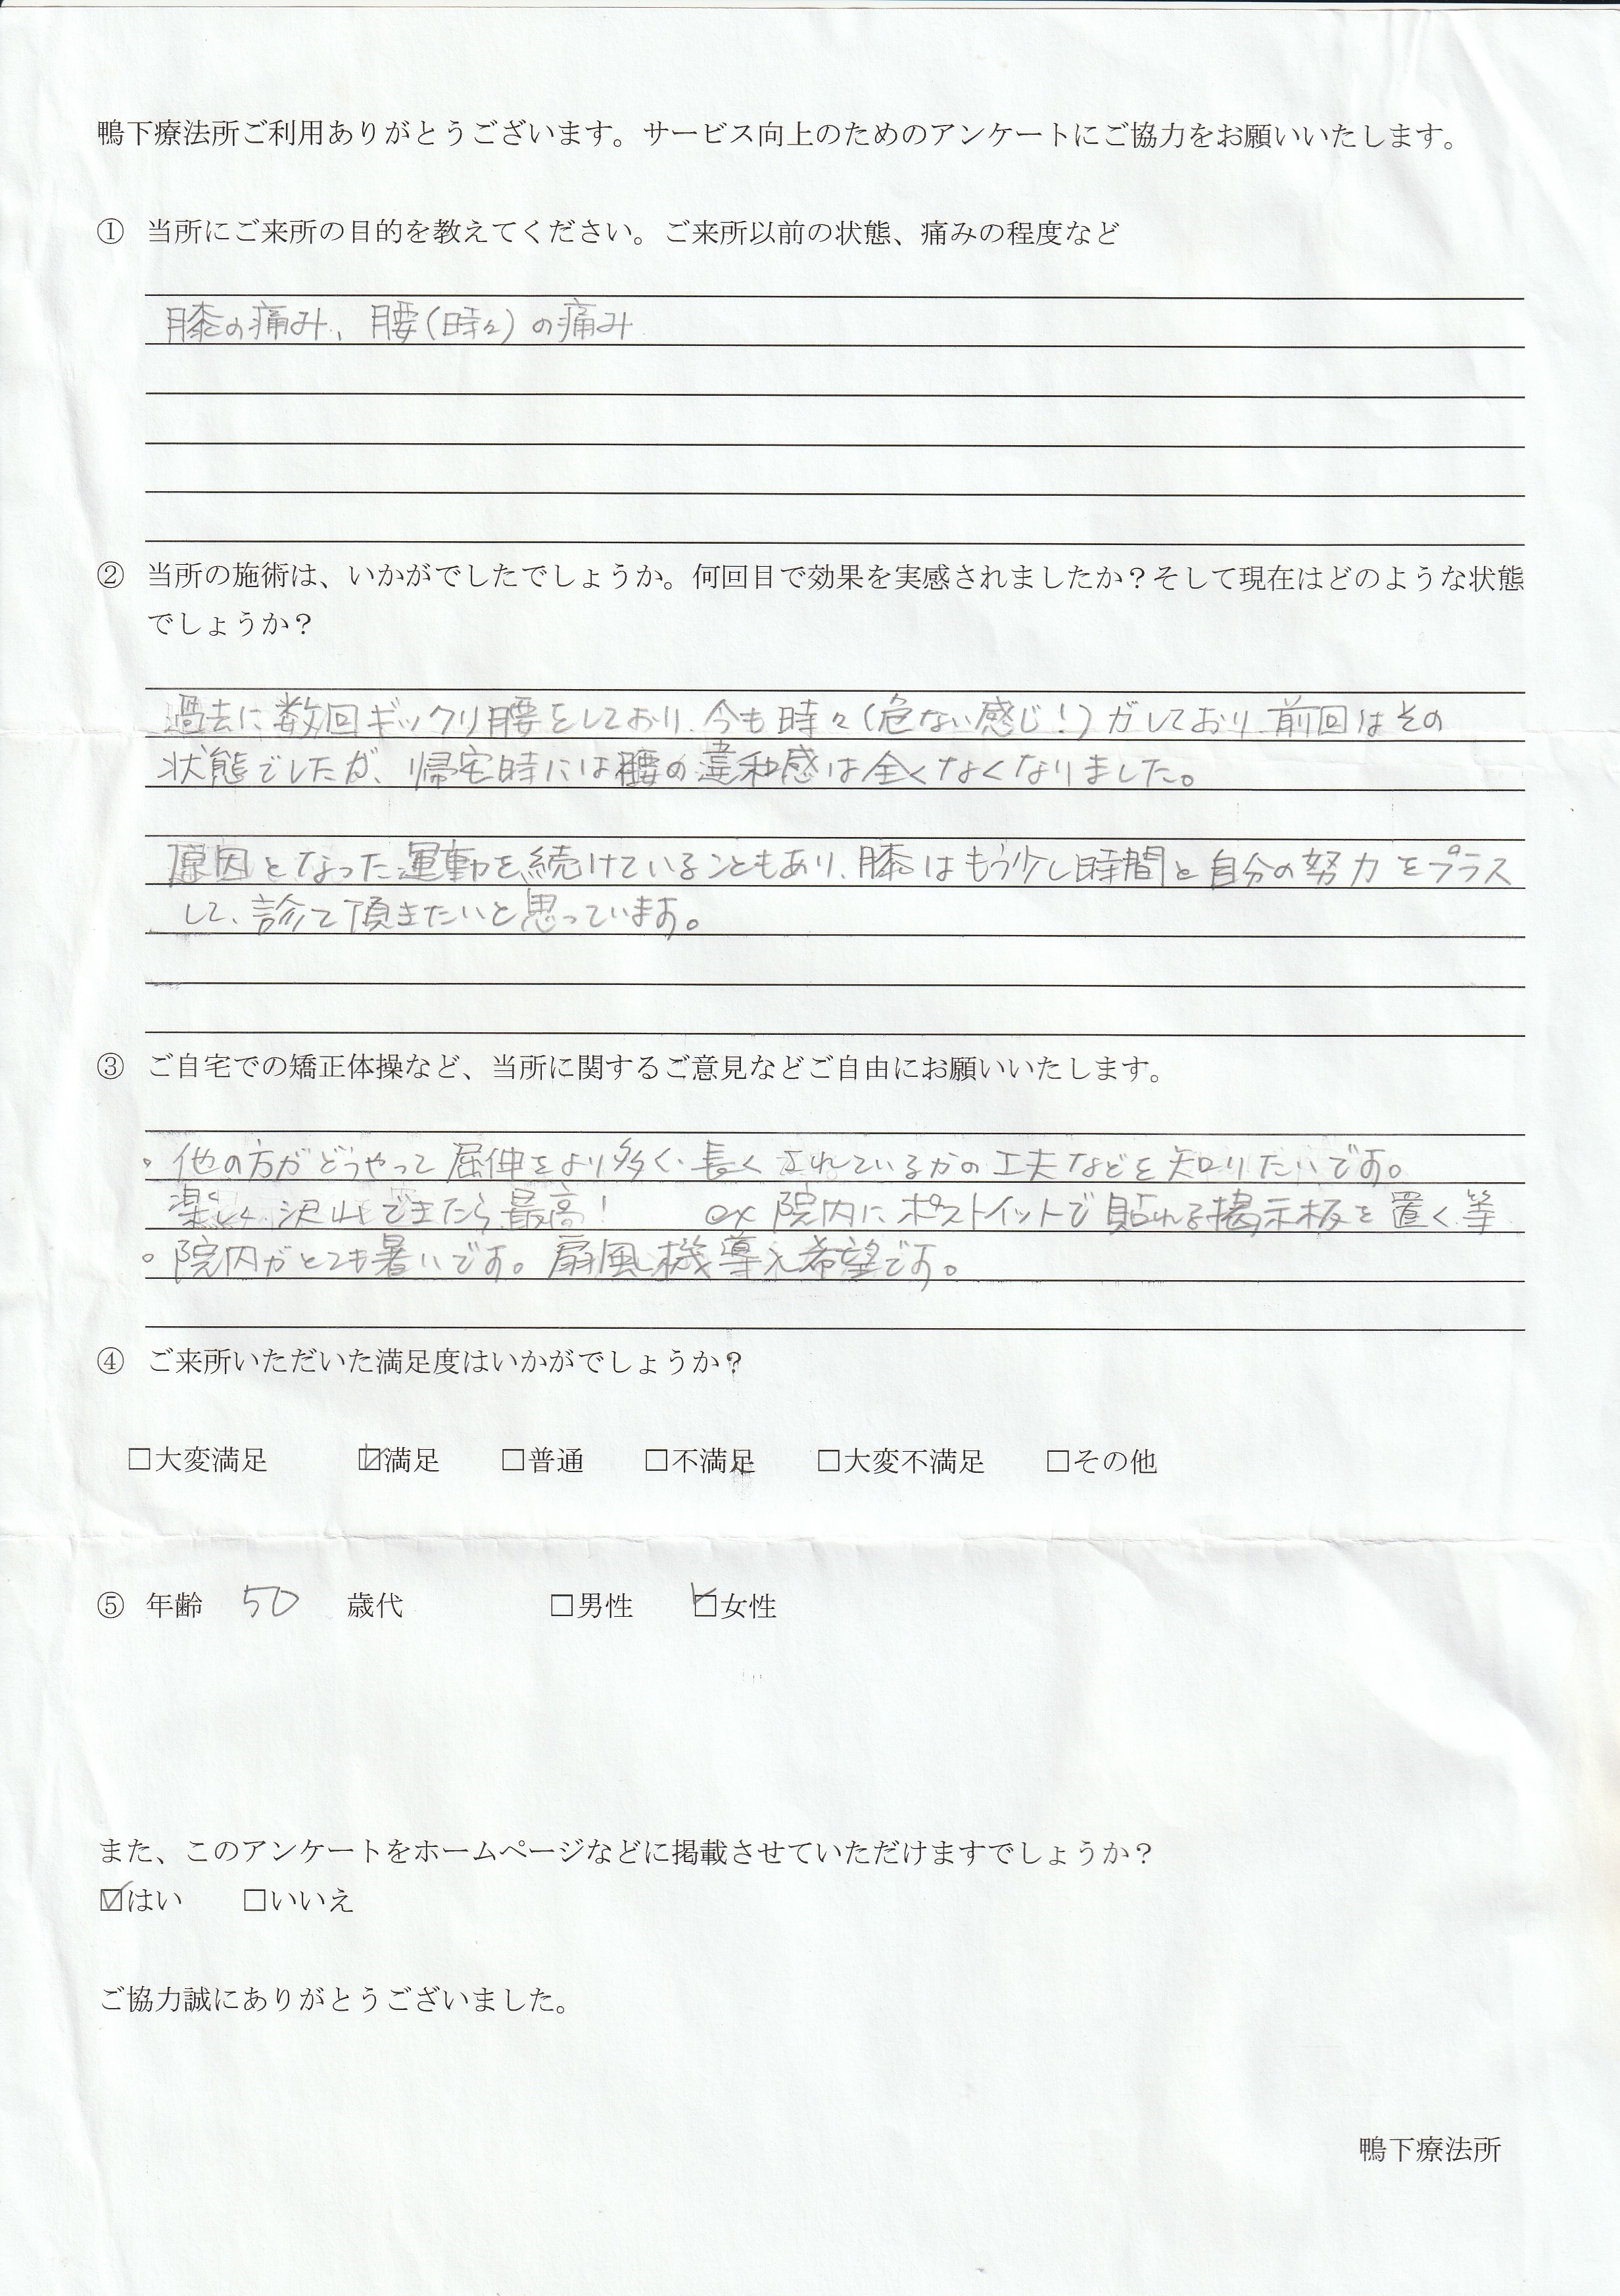 鴨下療法所ご利用ありがとうございます。サービス向上のためのアンケートにご協力をお願いいたします。
① 当所にご来所の目的を教えてください。ご来所以前の状態、痛みの程度など
膝の痛み、腰(時々)の痛み
② 当所の施術は、いかがでしたでしょうか。何回目で効果を実感されましたか？そして現在はどのような状態
でしょうか？
過去に数回ギックリ腰をしており、今も時々(危ない感じ！)がしており、前回はその
状態でしたが、帰宅時には腰の違和感は全くなくなりました。
原因となった運動を続けていることもあり、膝はもう少し時間と自分の努力をプラス
して、診て頂きたいと思っています。
③ ご自宅での矯正体操など、当所に関するご意見などご自由にお願いいたします。
。他の方がどうやって屈伸をより多く・長くされているかの工夫などを知りたいです。
楽しく沢山できたら最高！ ex 院内にポストイットで貼れる掲示板を置く等
。院内がとても暑いです。扇風機導入希望です。
④ ご来所いただいた満足度はいかがでしょうか？
□大変満足 ☑満足 □普通 □不満足 □大変不満足 □その他
⑤ 年齢 50 歳代 □男性 ☑女性
また、このアンケートをホームページなどに掲載させていただけますでしょうか？
☑はい □いいえ
ご協力誠にありがとうございました。
鴨下療法所